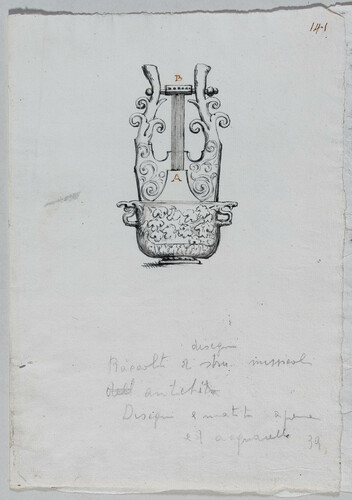 141
B
A
disegni
Raccolta di stru. musicali
antichità
Disegni a matita a penna
ed a acquarello 39